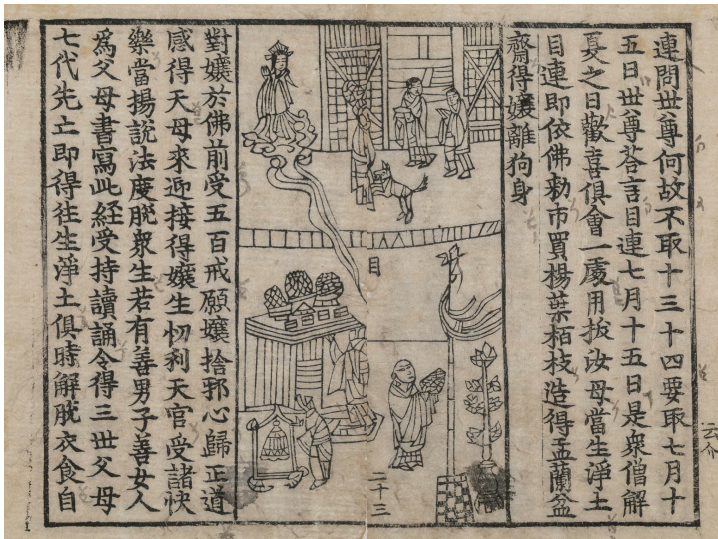 連問世尊何故不取十三十四要取七月十
五日世尊荅言目連七月十五日是衆僧解
夏之日歡喜俱會一處用拔汝母當生淨土
目連即依佛勑市買楊葉栢枝造得盂蘭盆
齋得孃離狗身
目
二十三
對孃於佛前受五百戒願孃捨邪心歸正道
感得天母來迎接得孃生忉利天官受諸快
樂當揚說法度脫衆生若有善男子善女人
爲父母書寫此経受持讀誦令得三世父母
七代先亡即得往生淨土俱時解脫衣食自